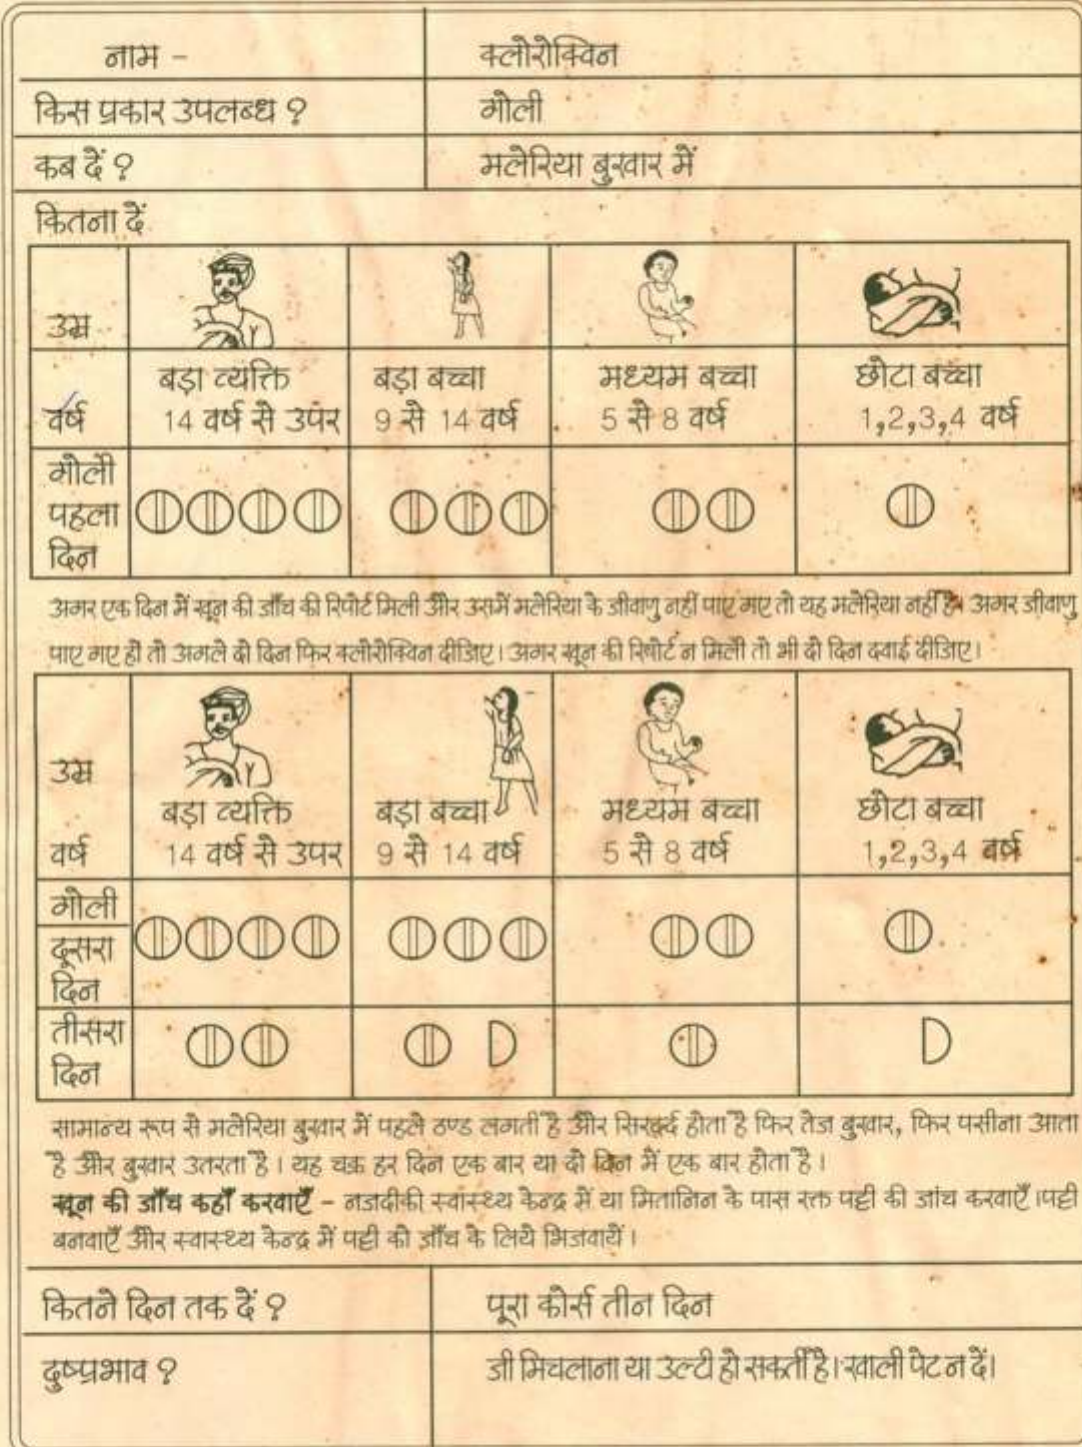 नाम - क्लोरोक्विन
किस प्रकार उपलब्ध ? गोली
कब दें ? मलेरिया बुखार में
कितना दें
उम्र
वर्ष
बड़ा व्यक्ति
14 वर्ष से उपर
बड़ा बच्चा
9 से 14 वर्ष
मध्यम बच्चा
5 से 8 वर्ष
छोटा बच्चा
1,2,3,4 वर्ष
गोली
पहला
दिन
अगर एक दिन में खून की जाँच की रिपोर्ट मिली और उसमें मलेरिया के जीवाणु नहीं पाए गए तो यह मलेरिया नहीं है। अगर जीवाणु
पाए गए हों तो अगले दो दिन फिर क्लोरोक्विन दीजिए। अगर खून की रिपोर्ट न मिली तो भी दो दिन दवाई दीजिए।
उम्र
वर्ष
बड़ा व्यक्ति
14 वर्ष से उपर
बड़ा बच्चा
9 से 14 वर्ष
मध्यम बच्चा
5 से 8 वर्ष
छोटा बच्चा
1,2,3,4 वर्ष
गोली
दूसरा
दिन
तीसरा
दिन
सामान्य रूप से मलेरिया बुखार में पहले ठण्ड लगती है और सिरदर्द होता है फिर तेज बुखार, फिर पसीना आता
है और बुखार उतरता है। यह चक्र हर दिन एक बार या दो दिन में एक बार होता है।
खून की जाँच कहाँ करवाएँ - नजदीकी स्वास्थ्य केन्द्र में या मितानिन के पास रक्त पट्टी की जांच करवाएँ।पट्टी
बनवाएँ और स्वास्थ्य केन्द्र में पट्टी को जाँच के लिये भिजवायें।
कितने दिन तक दें ? पूरा कोर्स तीन दिन
दुष्प्रभाव ? जी मिचलाना या उल्टी हो सकती है। खाली पेट न दें।